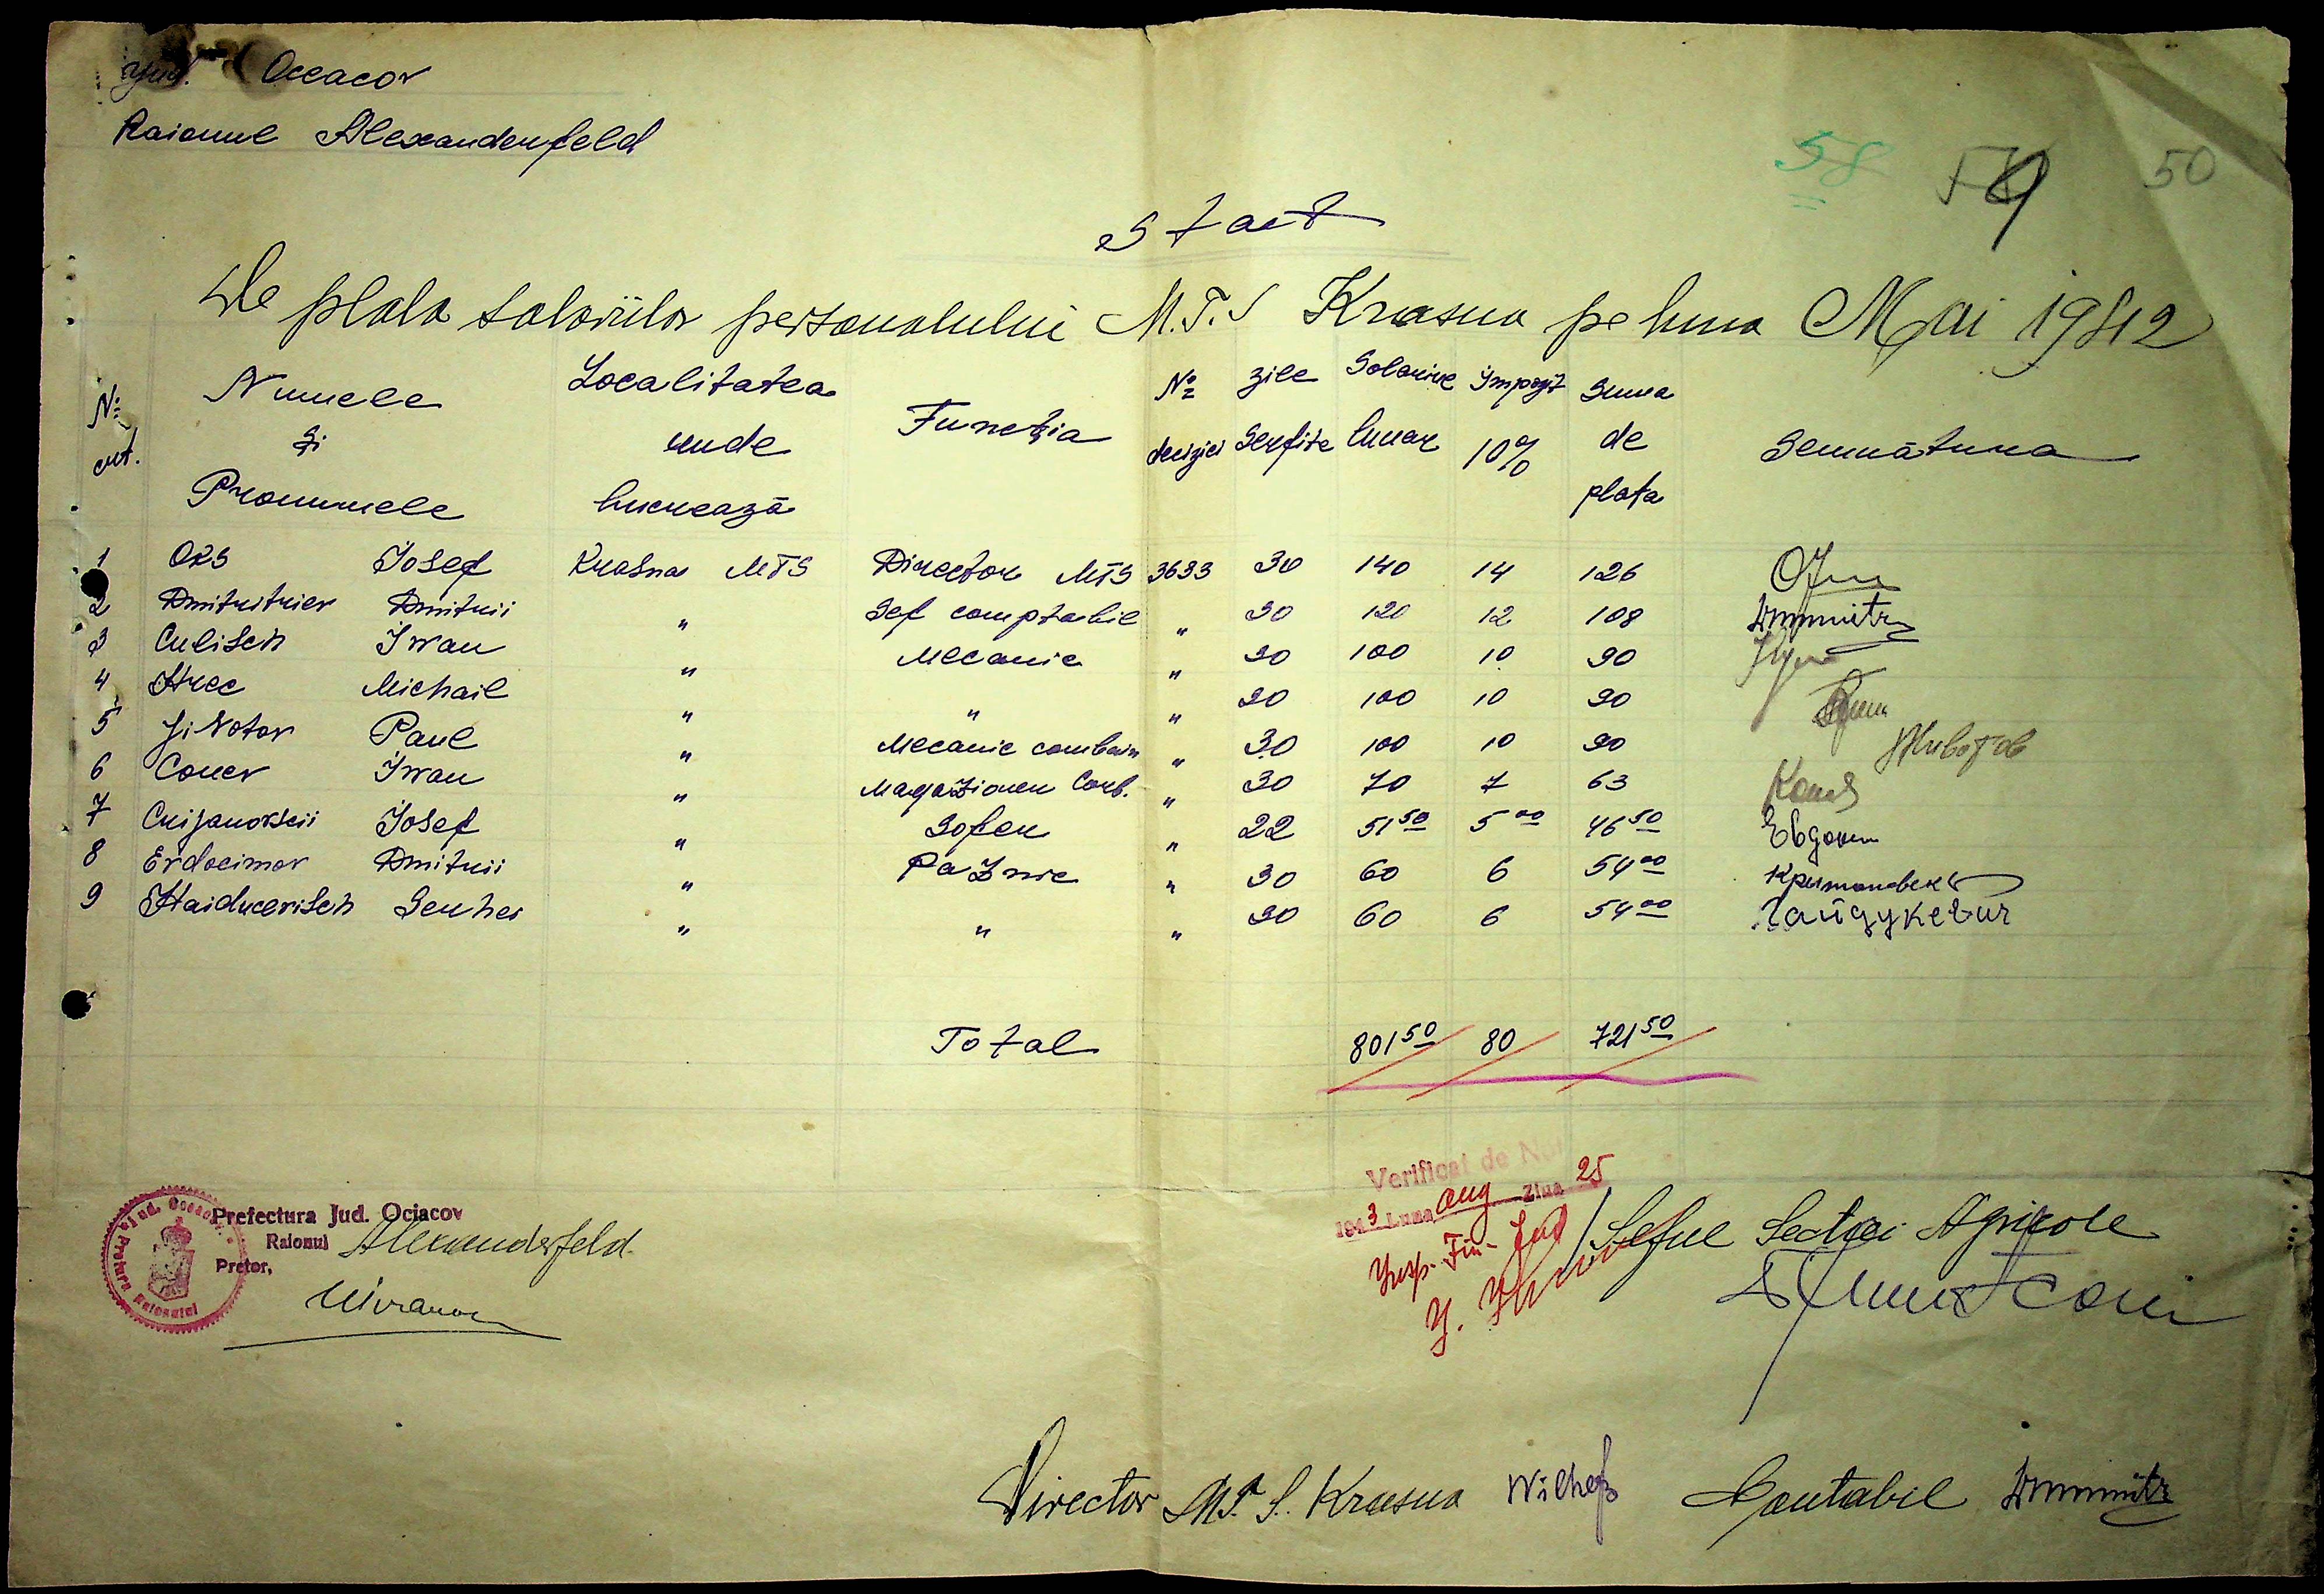 Jud. Oceacov
Raionul Alexanderfeld
58 59 50
Stat
De plata salariilor personalului M.T.S Krasna pe luna Mai 1942
№ crt. Numele și Pronumele Localitatea unde lucrează Funcția № deciziei zile Serfite Salariul lunar Impozit 10% Suma de plata Semnătura
1 Oks Iosef Krasna MTS Director MTS 3633 30 140 14 126
2 Dmitritriev Dmitrii " Sef comptabil " 30 120 12 108 Dmmitr
3 Culisch Iwan " Mecanic " 30 100 10 90
4 Hrec Michail " " " 30 100 10 90
5 Jivotov Paul " Mecanic combain " 30 100 10 90 Животов
6 Conev Iwan " Magazioner Comb. " 30 70 7 63 Конев
7 Crijanovscii Iosef " Sofer " 22 51 50 5 00 46 50 Евдоким
8 Evdocimov Dmitrii " Paznic " 30 60 6 54 00 Крижановск
9 Haiducevisch Serhei " " " 30 60 6 54 00 Гайдукевич
Total 801 50 80 721 50
Verificat de Noi
1943 Luna aug Ziua 25
Insp. Fin. Jud
Prefectura Jud. Ociacov
Raionul Alexanderfeld
Pretor,
Pretura Raionului
Seful Sectiei Agricole
Director M.T.S. Krasna Contabil Dmmitr